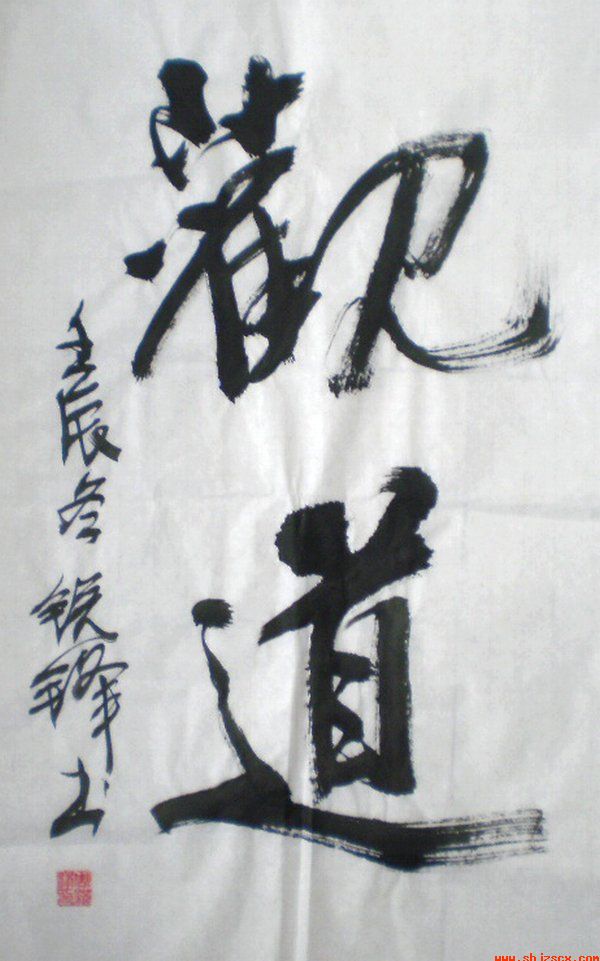 觀道
壬辰冬 锐锋书
www.shizscx.com